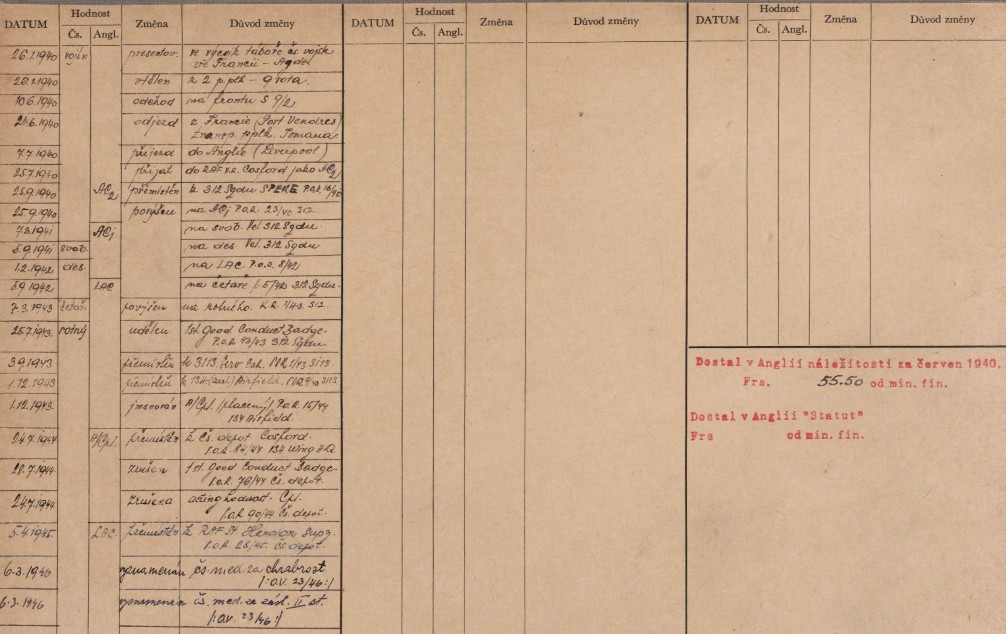 DATUM Hodnost Změna Důvod změny
Čs. Angl.
26.1.1940 vojín presentov. ve výcvik. táboře čs. vojsk
ve Francii - Agde
vtělen k 2 p.pl. - 9 rota.
10.6.1940 odchod na frontu s 9/2
odjezd z Francie (Port Vendres)
transp. pplk. Tomana
7.7.1940 příjezd do Anglie (Liverpool)
25.7.1940 přijat do RAF V.R. Cosford jako AC2
25.9.1940 AC2 přemístěn k 312 Sqdn P.O.R. 16/40
25.9.1940 povýšen na AC1 P.O.R. 23/40 312
7.3.1941 AC1 na svob. Vel. 312 Sqdn.
svob. na des. Vel. 312 Sqdn
1.2.1942 des. na LAC P.O.R. 8/42
LAC na četaře 312 Sqdn.
7.3.1943 četař povýšen na rotného. 312.
25.7.1943. rotný udělen 1st. Good Conduct Badge.
P.O.R. 43/43 312 Sqdn
3.9.1943 přemístěn k 3113 Serv. Ech. 3113.
1.12.1943 přemístěn k 134 Airfield. 3113.
1.12.1943. jmenován A/Cpl. /placený/ P.O.R. 15/44
134 Airfield.
24.7.1944 A/Cpl. přemístěn k Čs. depot Cosford.
P.O.R. 84/44 134 Wing H.Q.
zrušen 1st. Good Conduct Badge.
P.O.R. 76/44 Čs. depot.
24.7.1944 zrušena acting hodnost Cpl.
P.O.R. 90/44 Čs. depot.
5.4.1945. LAC. přemístěn k RAF St. Hendon
P.O.R. 28/45. Čs. depot.
6.3.1946 vyznamenán čs. med. za chrabrost
/:O.V. 23/46:/
6.3.1946 vyznamenán čs. med. za zásl. II st.
/:O.V. 23/46:/
DATUM Hodnost Změna Důvod změny
Čs. Angl.
DATUM Hodnost Změna Důvod změny
Čs. Angl.
Dostal v Anglii náležitosti za červen 1940.
Frs. 55.50 od min. fin.
Dostal v Anglii "Statut"
Frs od min. fin.